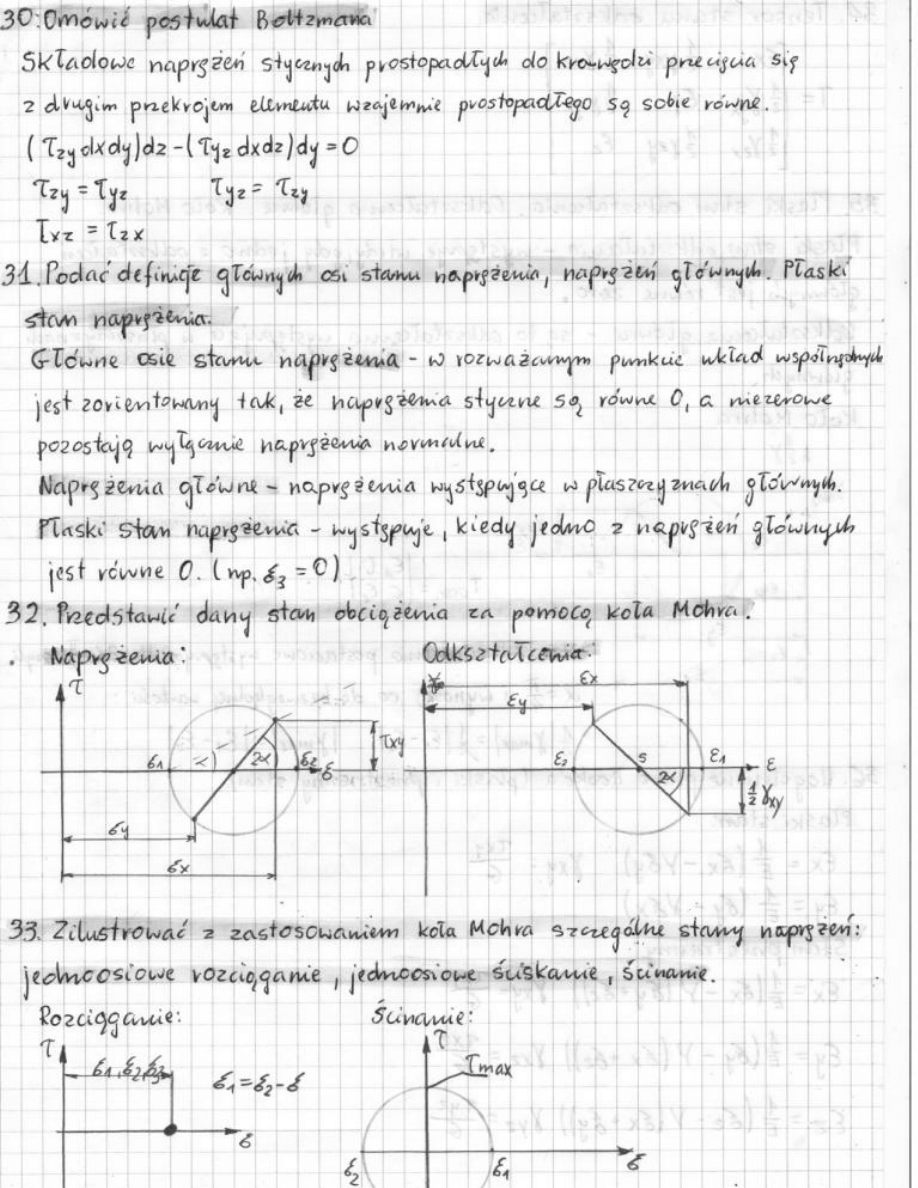 30. Omówić postulat Boltzmana
Składowe naprężeń stycznych prostopadłych do krawędzi przecięcia się
z drugim przekrojem elementu wzajemnie prostopadłego są sobie równe.
(τzy dxdy)dz - (τyz dxdz)dy = 0
τzy = τyz τyz = τzy
τxz = τzx
31. Podać definicję głównych osi stanu naprężenia, naprężeń głównych. Płaski
stan naprężenia.
Główne osie stanu naprężenia - w rozważanym punkcie układ współrzędnych
jest zorientowany tak, że naprężenia styczne są równe 0, a niezerowe
pozostają wyłącznie naprężenia normalne.
Naprężenia główne - naprężenia występujące w płaszczyznach głównych.
Płaski stan naprężenia - występuje, kiedy jedno z naprężeń głównych
jest równe 0. (np. σ3 = 0)
32. Przedstawić dany stan obciążenia za pomocą koła Mohra.
Naprężenia: Odkształcenia:
τ εx
εy
τxy
σ1 α 2α σ2 σ ε2 s 2α ε1 ε
½ γxy
σy
σx
33. Zilustrować z zastosowaniem koła Mohra szczególne stany naprężeń:
jednoosiowe rozciąganie, jednoosiowe ściskanie, ścinanie.
Rozciąganie: Ścinanie:
τ τ
σ1, σ2, σ3 σ1 = σ2 - σ τmax
σ σ2 σ1 σ